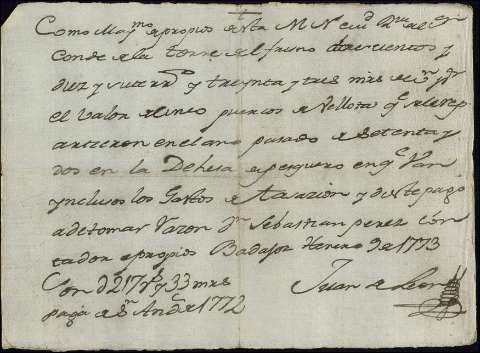 Como Maymo apropios de sta M N Ciud
Conde de la torre del fresno trecientos y
diez y siete rrs y treynta y tres mrs de vn
el valor de cinco puercos de vellota qe se le rep
artieron en el año pasado de setenta y
dos en la Dehesa de pesquero en qe van
ynclusos los Gastos de tasazion y de este pago
a de tomar razon Dn Sebastian perez con
tador de propios Badajoz Henero 9 de 1773
Son d 217 rs y 33 mrs
paga de Sn Andrs de 1772
Juan de Leon